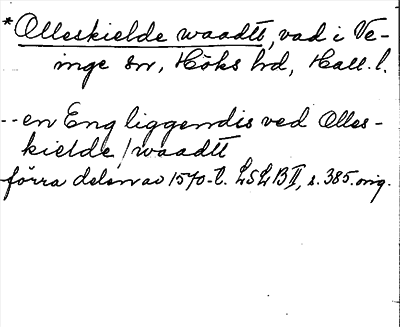 *Olleskielde waadtt, vad i Ve-
inge sn, Höks hd, Hall. l.
-- en Eng liggendis ved Olles-
kielde / waadtt
förra delen av 1570-t. LSLB II, s. 385. orig.